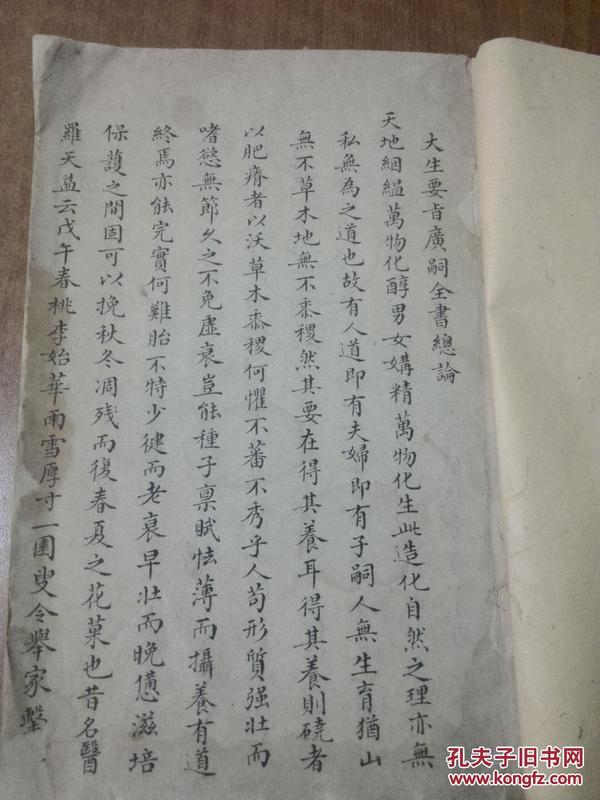 大生要旨廣嗣全書總論
天地絪縕萬物化醇男女媾精萬物化生此造化自然之理亦無
私無為之道也故有人道即有夫婦即有子嗣人無生育猶山
無不草木地無不黍稷然其要在得其養耳得其養則磽者
以肥瘠者以沃草木黍稷何懼不蕃不秀乎人苟形質强壯而
嗜慾無節久之不免虛衰豈能種子禀賦怯薄而攝養有道
終焉亦能完實何難胎不特少健而老衰早壯而晚憊滋培
保護之間固可以挽秋冬凋残而復春夏之花菓也昔名醫
羅天益云戊午春桃李始華雨雪厚寸一園叟令舉家擊
孔夫子旧书网
www.kongfz.com